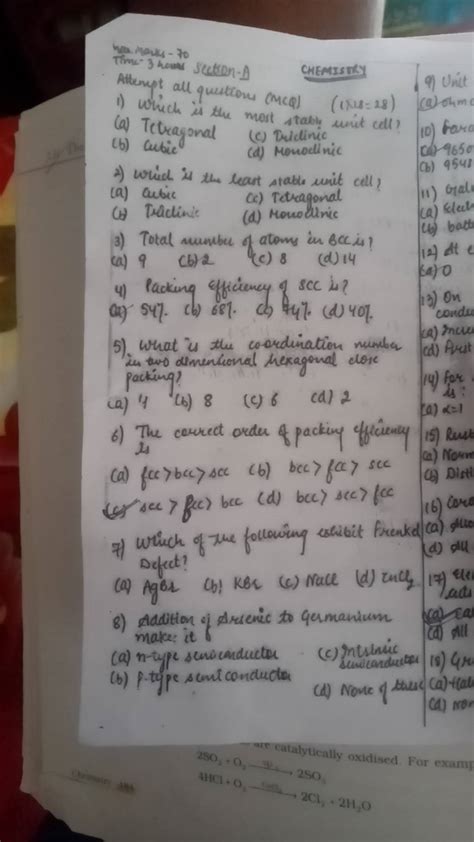 Max. Marks - 70
Time - 3 hours Section-A CHEMISTRY
Attempt all questions (MCQ) (1X28=28)
1) Which is the most stable unit cell?
(a) Tetragonal (c) Triclinic
(b) Cubic (d) Monoclinic
2) Which is the least stable unit cell?
(a) Cubic (c) Tetragonal
(b) Triclinic (d) Monoclinic
3) Total number of atoms in BCC is?
(a) 9 (b) 2 (c) 8 (d) 14
4) Packing efficiency of SCC is?
(a) 54% (b) 68% (c) 74% (d) 40%
5) What is the co-ordination number
in two dimentional hexagonal close
packing?
(a) 4 (b) 8 (c) 6 (d) 2
6) The correct order of packing efficiency
is
(a) fcc > bcc > scc (b) bcc > fcc > scc
(c) scc > fcc > bcc (d) bcc > scc > fcc
7) Which of the following exhibit Frenkel
Defect?
(a) AgBr (b) KBr (c) NaCl (d) ZnCl2
8) Addition of Arsenic to Germanium
make it
(a) n-type semiconductor (c) Intrinsic
semiconductor
(b) p-type semiconductor
(d) None of these
9) Unit
(a) ohm
10)
(a) 9650
(b) 9548
11)
(a)
(b)
12) At
(a) 0
13) On
(a)
(d) First
14) For
is:
(a) α=1
15) Rust
(a) Norm
(b) Disti
16)
(a)
(d) All
17)
(a)
(d) All
18)
(a)
(d) non
are catalytically oxidised. For examp
2SO2 + O2 → 2SO3
4HCl + O2 → 2Cl2 + 2H2O
Chemistry